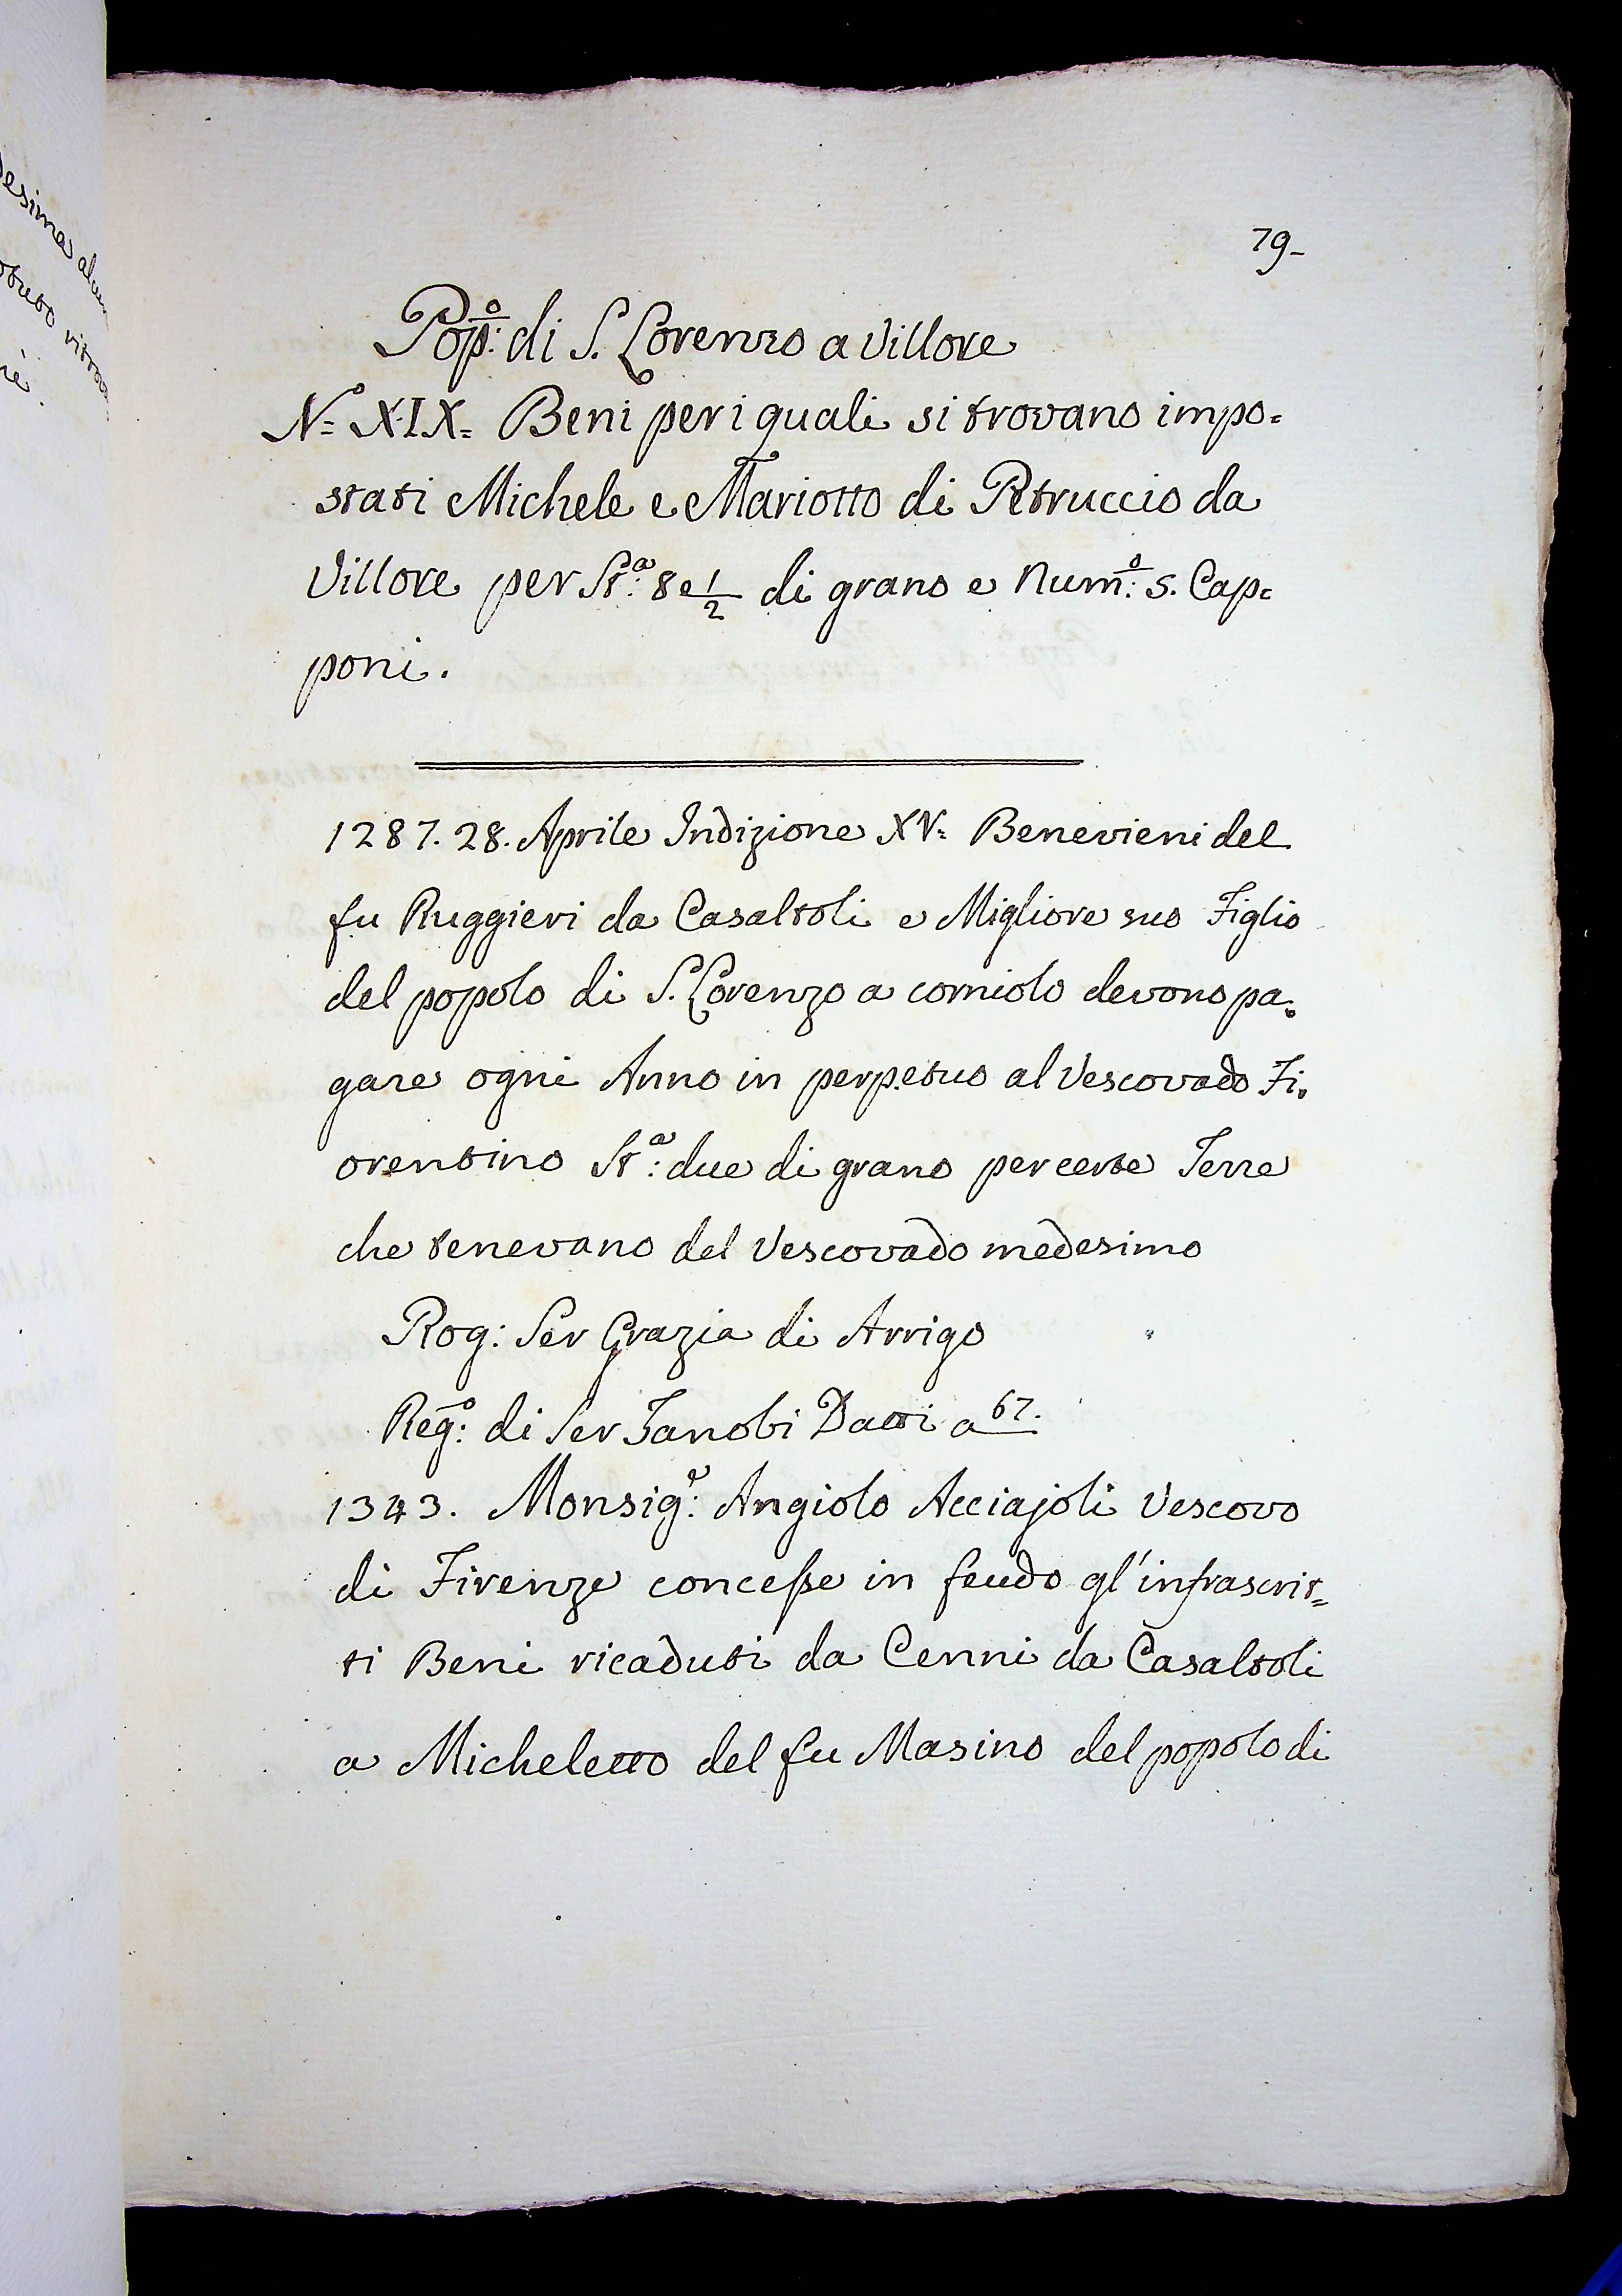 79-
Pop:o di S. Lorenzo a Villore
N= XIX= Beni per i quali si trovano impo=
stati Michele e Mariotto di Petruccio da
Villore per St:a 8 e 1/2 di grano e Num:o 5. Cap=
poni.
1287. 28. Aprile Indizione XV= Benevieni del
fu Ruggieri da Casaltoli e Migliore suo Figlio
del popolo di S. Lorenzo a corniolo devono pa=
gare ogni Anno in perpetuo al Vescovado Fi=
orentino St:a due di grano per certe Terre
che tenevano del Vescovado medesimo
Rog: Ser Grazia di Arrigo
Reg:o di Ser Zanobi Datti a 67.
1343. Monsig:e Angiolo Acciajoli Vescovo
di Firenze concesse in feudo gl'infrascrit=
ti Beni ricaduti da Cenni da Casaltoli
a Micheletto del fu Masino del popolo di